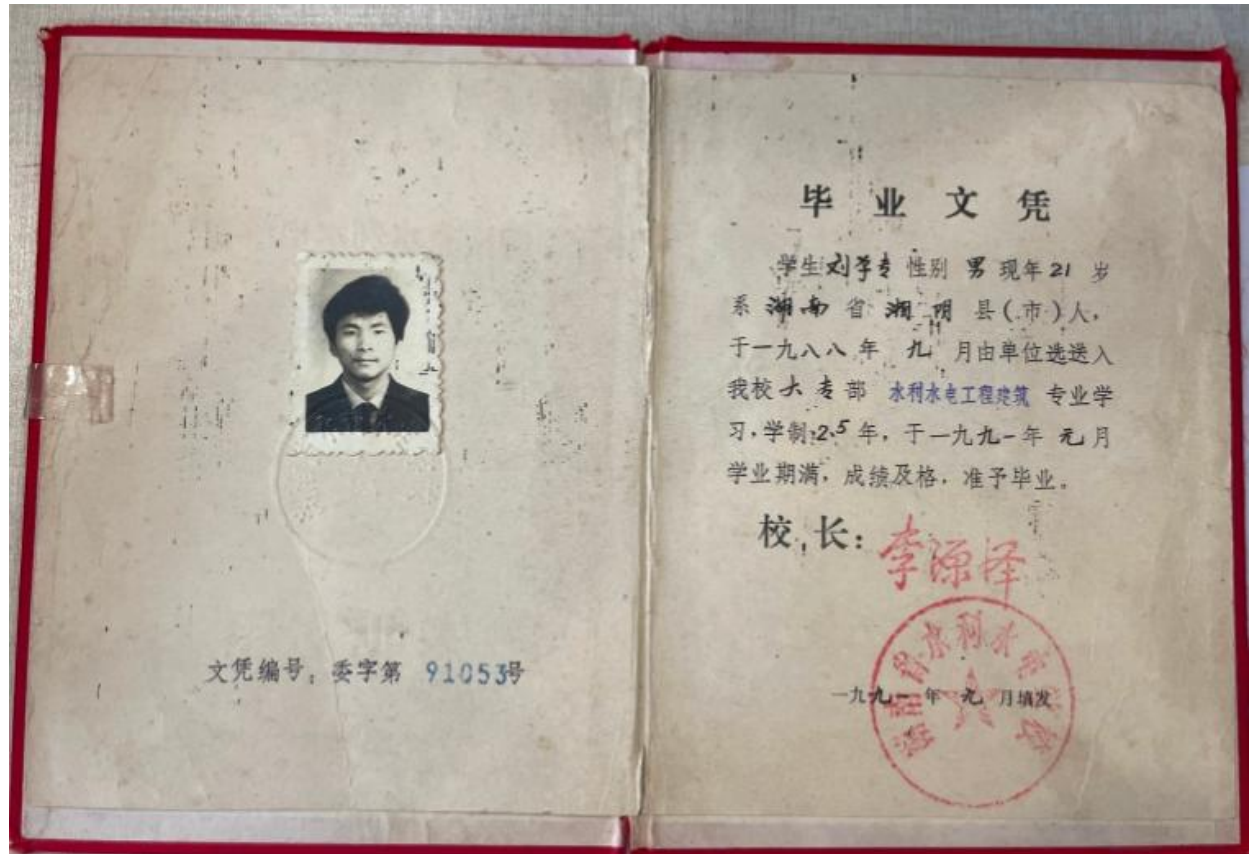 文凭编号：委字第 91053号
毕业文凭
学生刘学专性别 男 现年21岁
系 湖南 省 湘阴 县(市)人，
于一九八八年 九 月由单位选送入
我校大专部 水利水电工程建筑 专业学
习，学制2.5年，于一九九一年 元月
学业期满，成绩及格，准予毕业。
校长：李源泽
湖南省水利水电学校
一九九一年 元 月填发